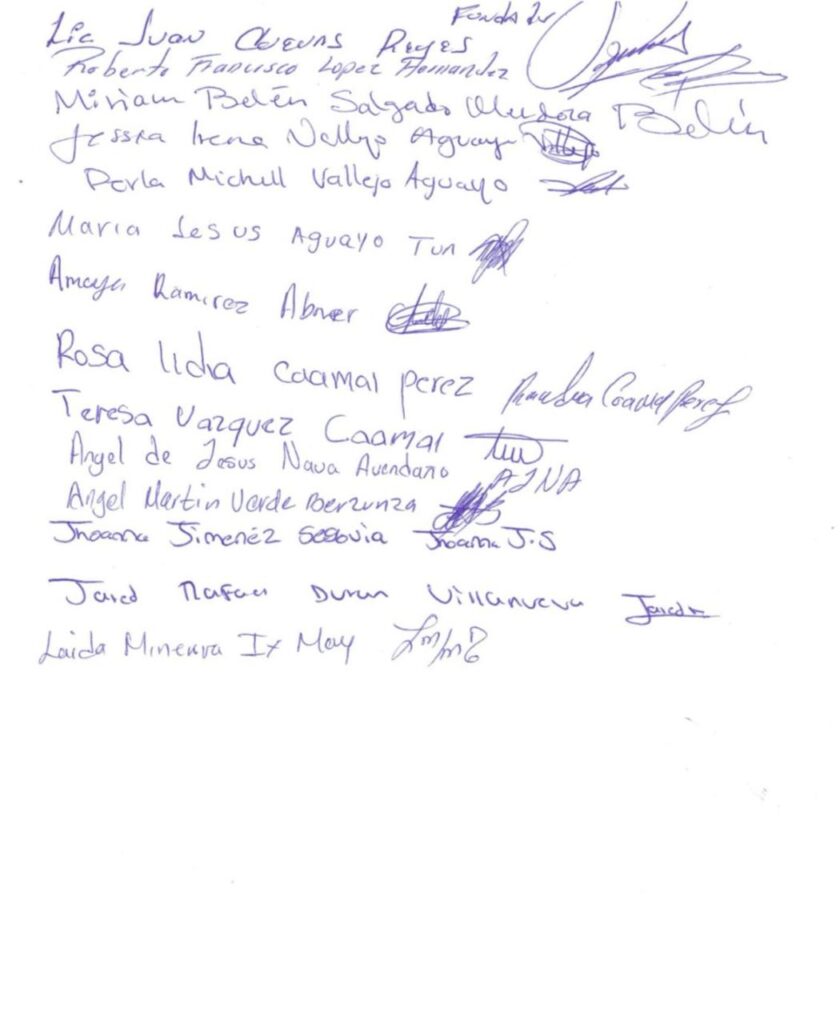 Lic Juan Cuevas Reyes Fundador
Roberto Francisco Lopez Hernandez
Miriam Belén Salgado Mendoza Belén
Jessica Irene Vallejo Aguayo Vallejo
Perla Michell Vallejo Aguayo
Maria Jesus Aguayo Tun
Amaya Ramirez Abner
Rosa lidia Caamal perez
Teresa Vazquez Caamal
Angel de Jesus Nava Avendano AJNA
Angel Martin Verde Berzunza
Jhoanna Jimenéz Segovia Jhoanna J.S
Jared Rafael Duran Villanueva Jared
Laida Minerva Ix May